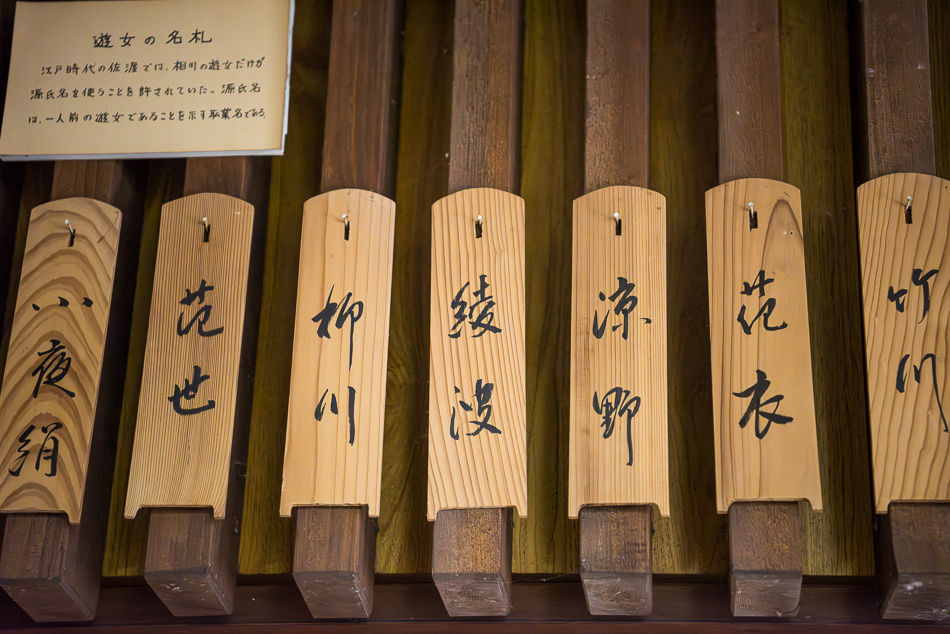 遊女の名札
江戸時代の佐渡では、相川の遊女だけが
源氏名を使うことを許されていた。源氏名
は、一人前の遊女であることを示す職業名である。
小夜絹
范世
柳川
綾波
涼野
花衣
竹川